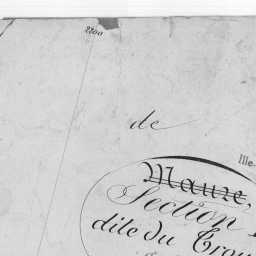 2200
de
Ille
Maure,
Section
dite du Trou